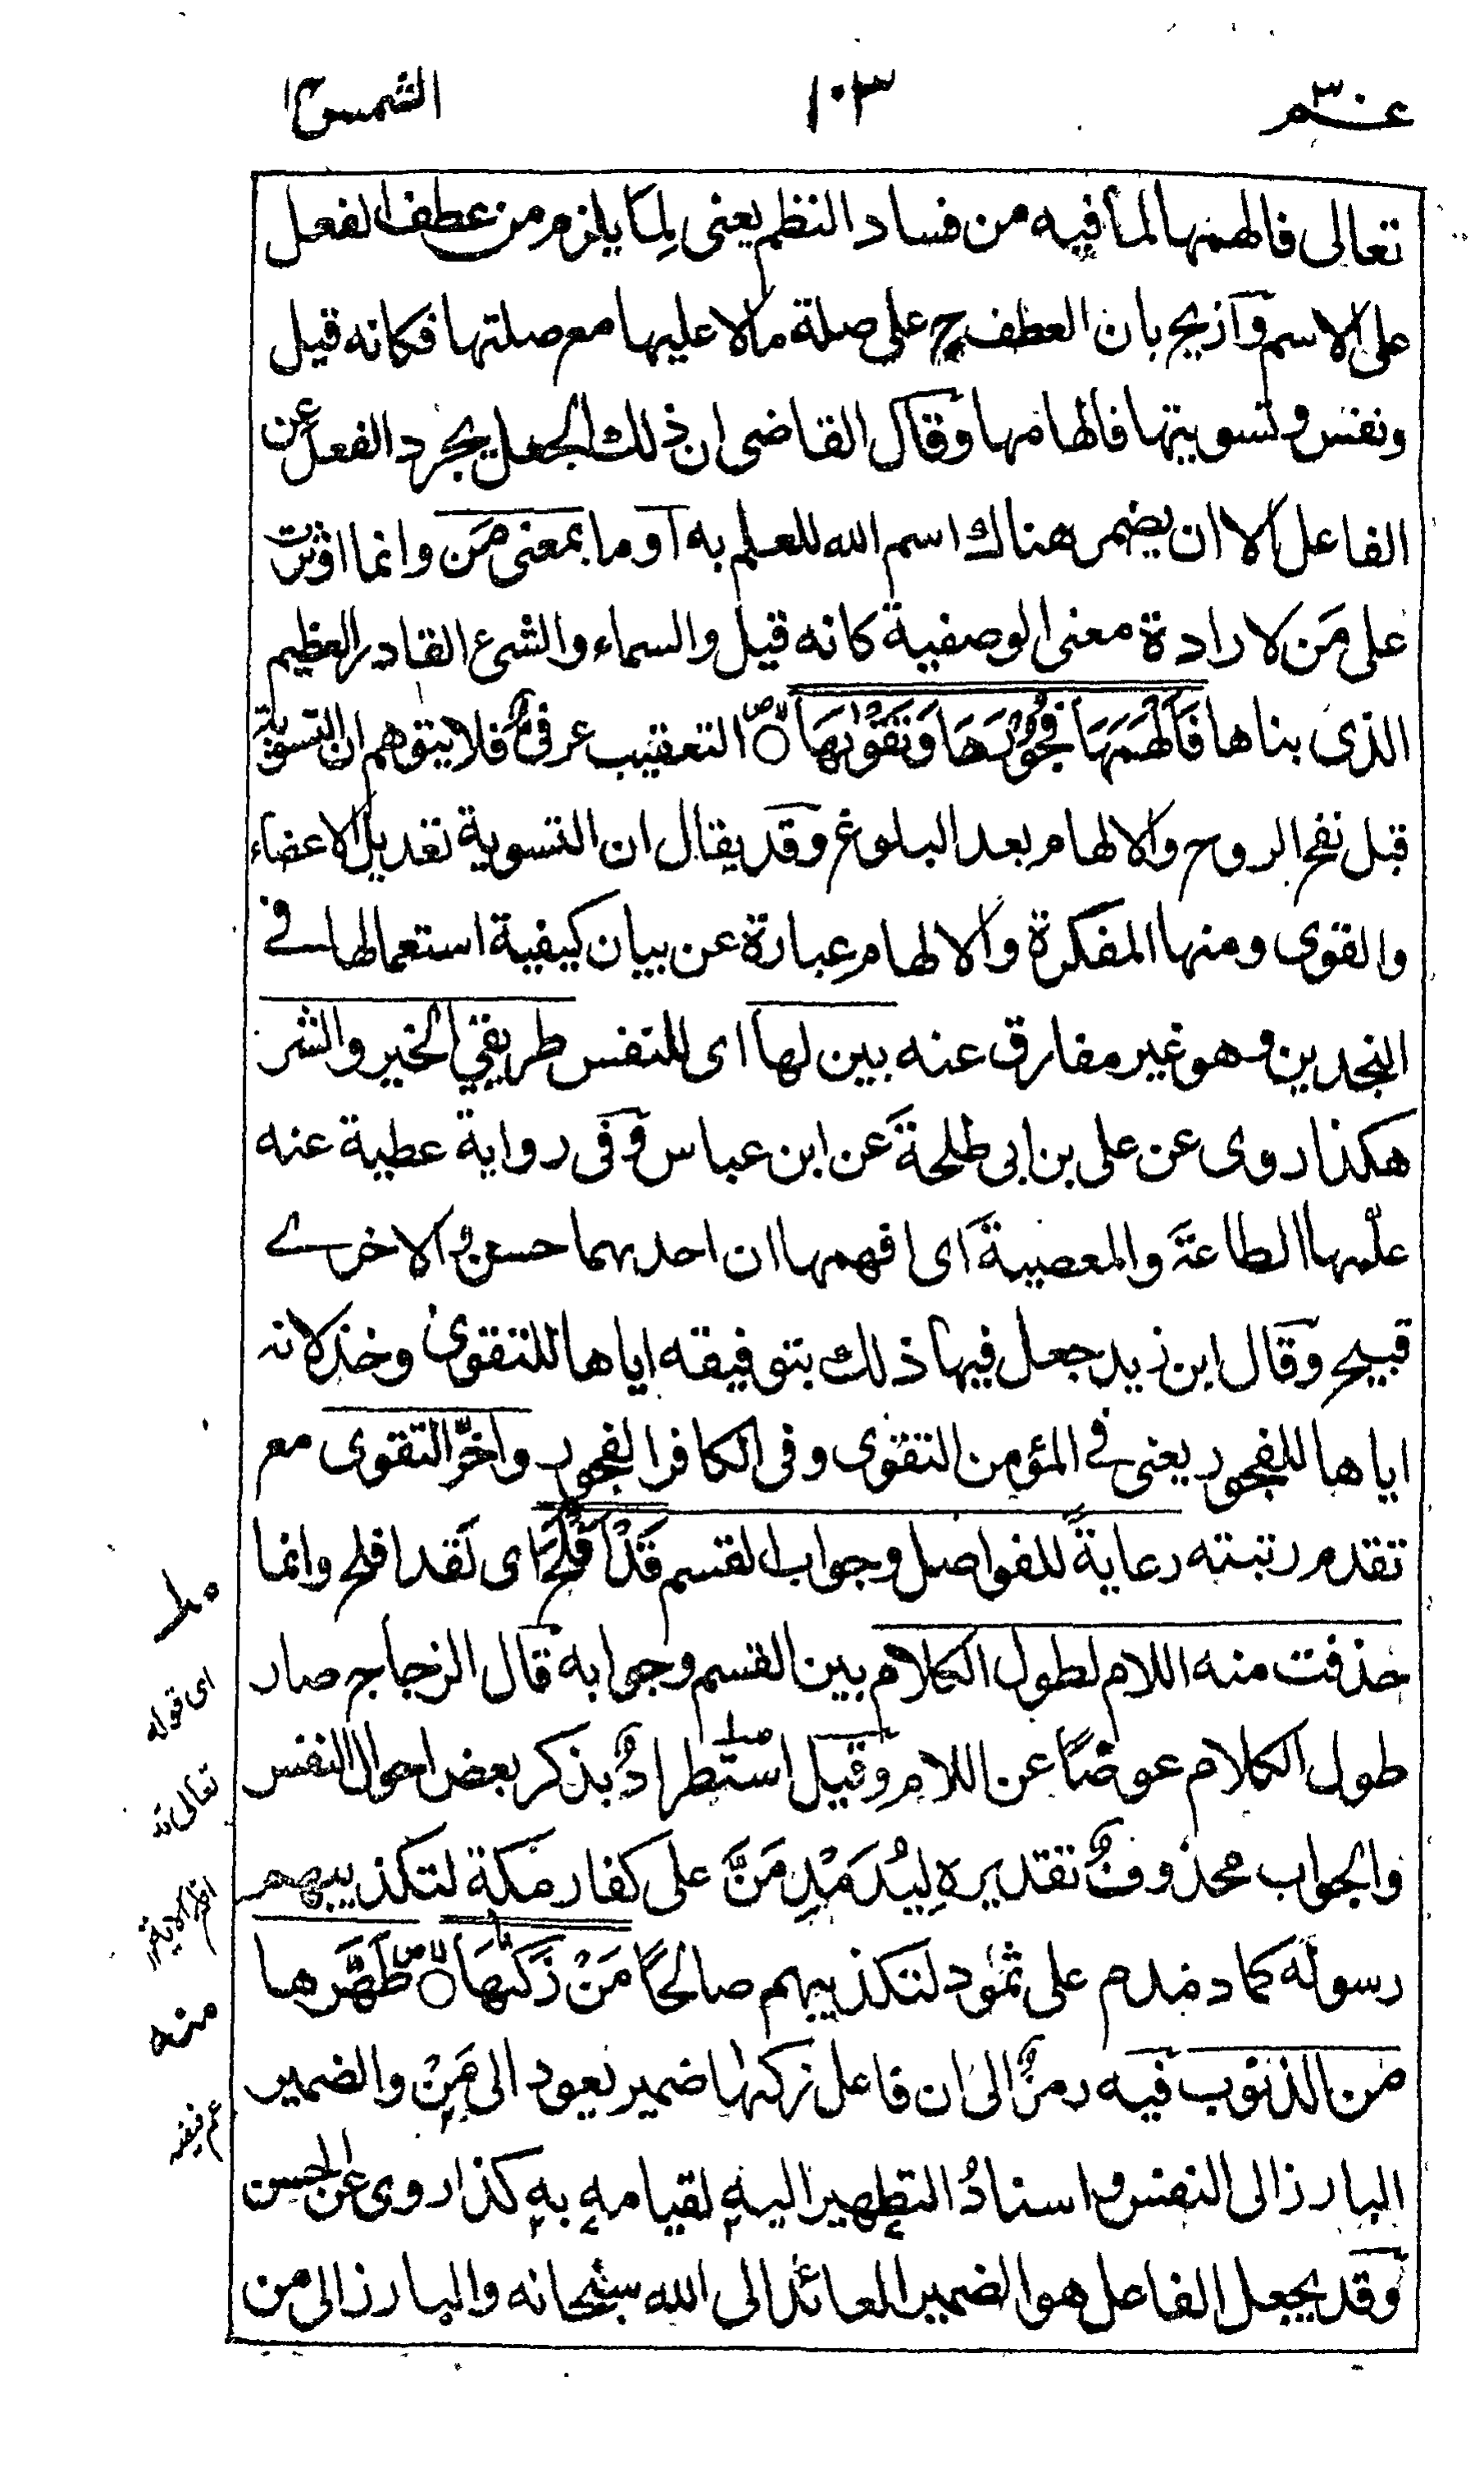 عـم ٣٠
١٠٣
الشمس ٩١
تعالى فالهمها لما فيه من فساد النظم يعنى لِمَا يلزم من عطف الفعل
على الاسم وازيح بان العطف ح على صلة ما لا عليها مع صلتها فكانه قيل
ونفس وتسويتها فالهامها وقال القاضى ان ذلك الجعل يجرد الفعل عن
الفاعل الا ان يضمر هناك اسم الله للعلم به آو ما بمعنى مَن وانما اوثرت
على مَن لارادة معنى الوصفية كانه قيل والسماء والشئ القادر العظيم
الذى بناها فَاَلْهَمَهَا فُجُوْرَهَا وَتَقْوٰىهَا التعقيب عرفىٌ فلا يتوهم ان التسوية
قبل نفخ الروح والالهام بعد البلوغ وقد يقال ان التسوية تعديل الاعضاء
والقوى ومنها المفكرة والالهام عبارة عن بيان كيفية استعمالها فى
النجدين وهو غير مفارق عنه بين لها اى للنفس طريقي الخير والشر
هكذا روى عن على بن ابى طلحة عن ابن عباس وفى رواية عطية عنه
علّمها الطاعة والمعصية اى افهمها ان احدهما حسن والاخرى
قبيح وقال ابن زيد جعل فيها ذلك بتوفيقه اياها للتقوى وخذلانه
اياها للفجور يعنى فى المؤمن التقوى وفى الكافر الفجور واخّر التقوى مع
تقدم رتبته رعايةً للفواصل وجواب القسم قَدْ اَفْلَحَ اى لقد افلح وانما
حذفت منه اللام لطول الكلام بين القسم وجوابه قال الزجاج صار
طول الكلام عوضًا عن اللام وقيل استطرادٌ بذكر بعض احوال النفس
والجواب محذوفٌ تقديره لِيُدَمْدِمَنَّ على كفار مكة لتكذيبهم
رسوله كما دمدم على ثمود لتكذيبهم صالحًا مَنْ زَكّٰىهَا طَهَّرها
من الذنوب فيه رمزٌ الى ان فاعل زكىٰها ضمير يعود الى مَنْ والضمير
البارز الى النفس واسنادُ التطهير اليه لقيامه به كذا روى عن الحسن
وقد يجعل الفاعل هو الضمير العائد الى الله سبحانه والبارز الى من
اى قوله
تعالى قد
افلح الآية
منه